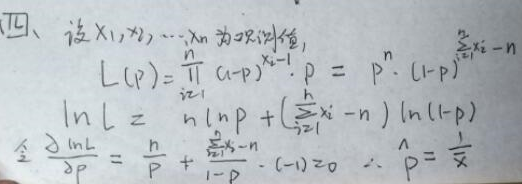 四、设 x₁, x₂, …, xₙ 为观测值,
L(p) = ∏_{i=1}^{n} (1-p)^{x_i-1} · p = pⁿ · (1-p)^{∑_{i=1}^{n} x_i - n}
ln L = n ln p + (∑_{i=1}^{n} x_i - n) ln (1-p)
令 ∂ ln L / ∂p = n/p + (∑_{i=1}^{n} x_i - n)/(1-p) · (-1) = 0 ∴ p̂ = 1/x̄